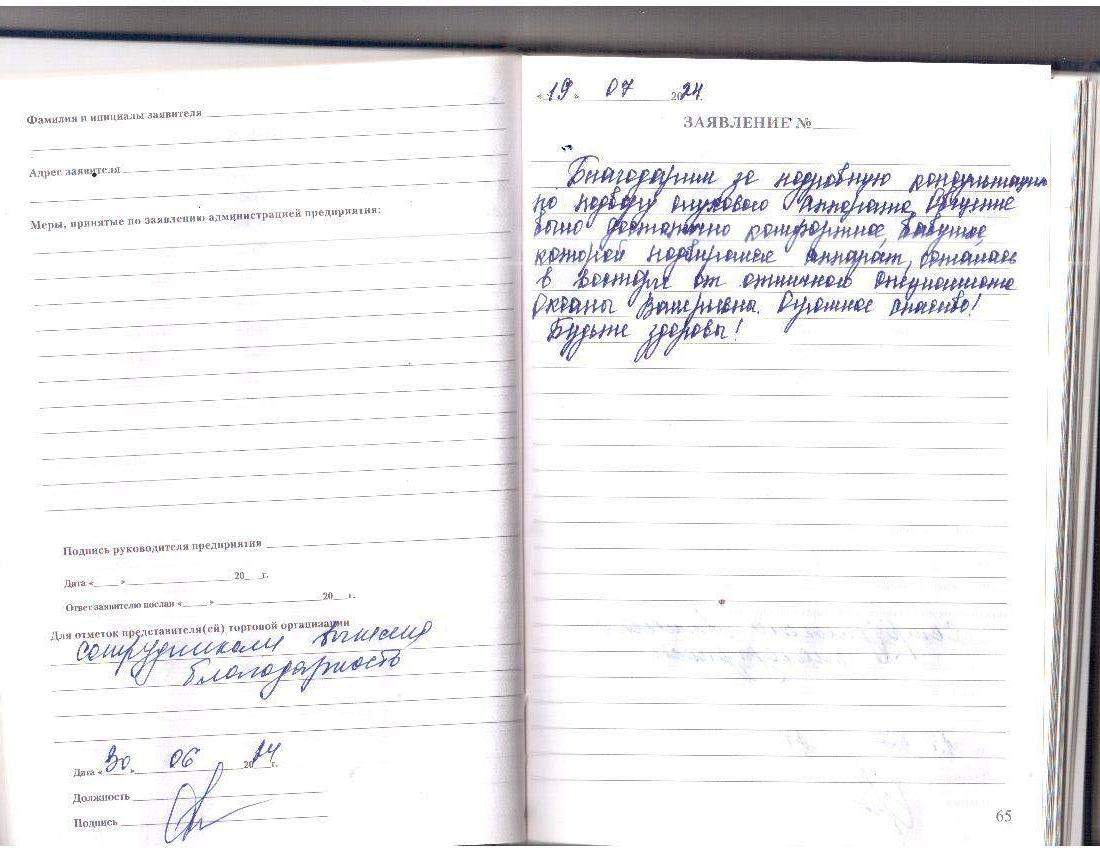 Фамилия и инициалы заявителя
Адрес заявителя
Меры, принятые по заявлению администрацией предприятия:
Подпись руководителя предприятия
Дата « » 20 г.
Ответ заявителю послан « » 20 г.
Для отметок представителя(ей) торговой организации
сотрудникам вынесена
благодарность
Дата « 30 » 06 2024 г.
Должность
Подпись
« 19 » 07 2024 г.
ЗАЯВЛЕНИЕ №
Благодарим за подробную консультацию
по подбору слухового аппарата. Общение
было достаточно комфортное, бабушка,
которой подбирали аппарат, осталась
в восторге от отличного отношения
Оксаны Валерьевны. Огромное спасибо!
Будьте здоровы!
65